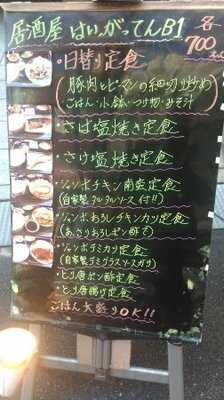 居酒屋 はいがってんB1 各700
・日替り定食
(豚肉とピーマンの細切炒め)
ごはん・小鉢・つけ物・みそ汁
・さば塩焼き定食
・さけ塩焼き定食
・ジャンボチキン南蛮定食
(自家製タルタルソース付!!)
・ジャンボおろしチキンカツ定食
(あっさりおろしポン酢で)
・ジャンボデミカツ定食
(自家製デミグラスソースがけ)
・とり唐ポン酢定食
・とり唐揚げ定食
ごはん大盛りOK!!